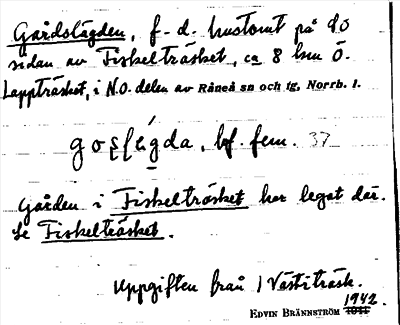 Gårdslägden, f-d. hustomt på NO
sidan av Fiskelträsket, ca 8 km Ö.
Lappträsket, i N.O. delen av Råneå sn och tg, Norrb. l.
bf. fem. 37
Gården i Fiskelträsket har legat där.
Se Fiskelträsket.
Uppgiften från / Västiträsk.
1942.
EDVIN BRÄNNSTRÖM 1941